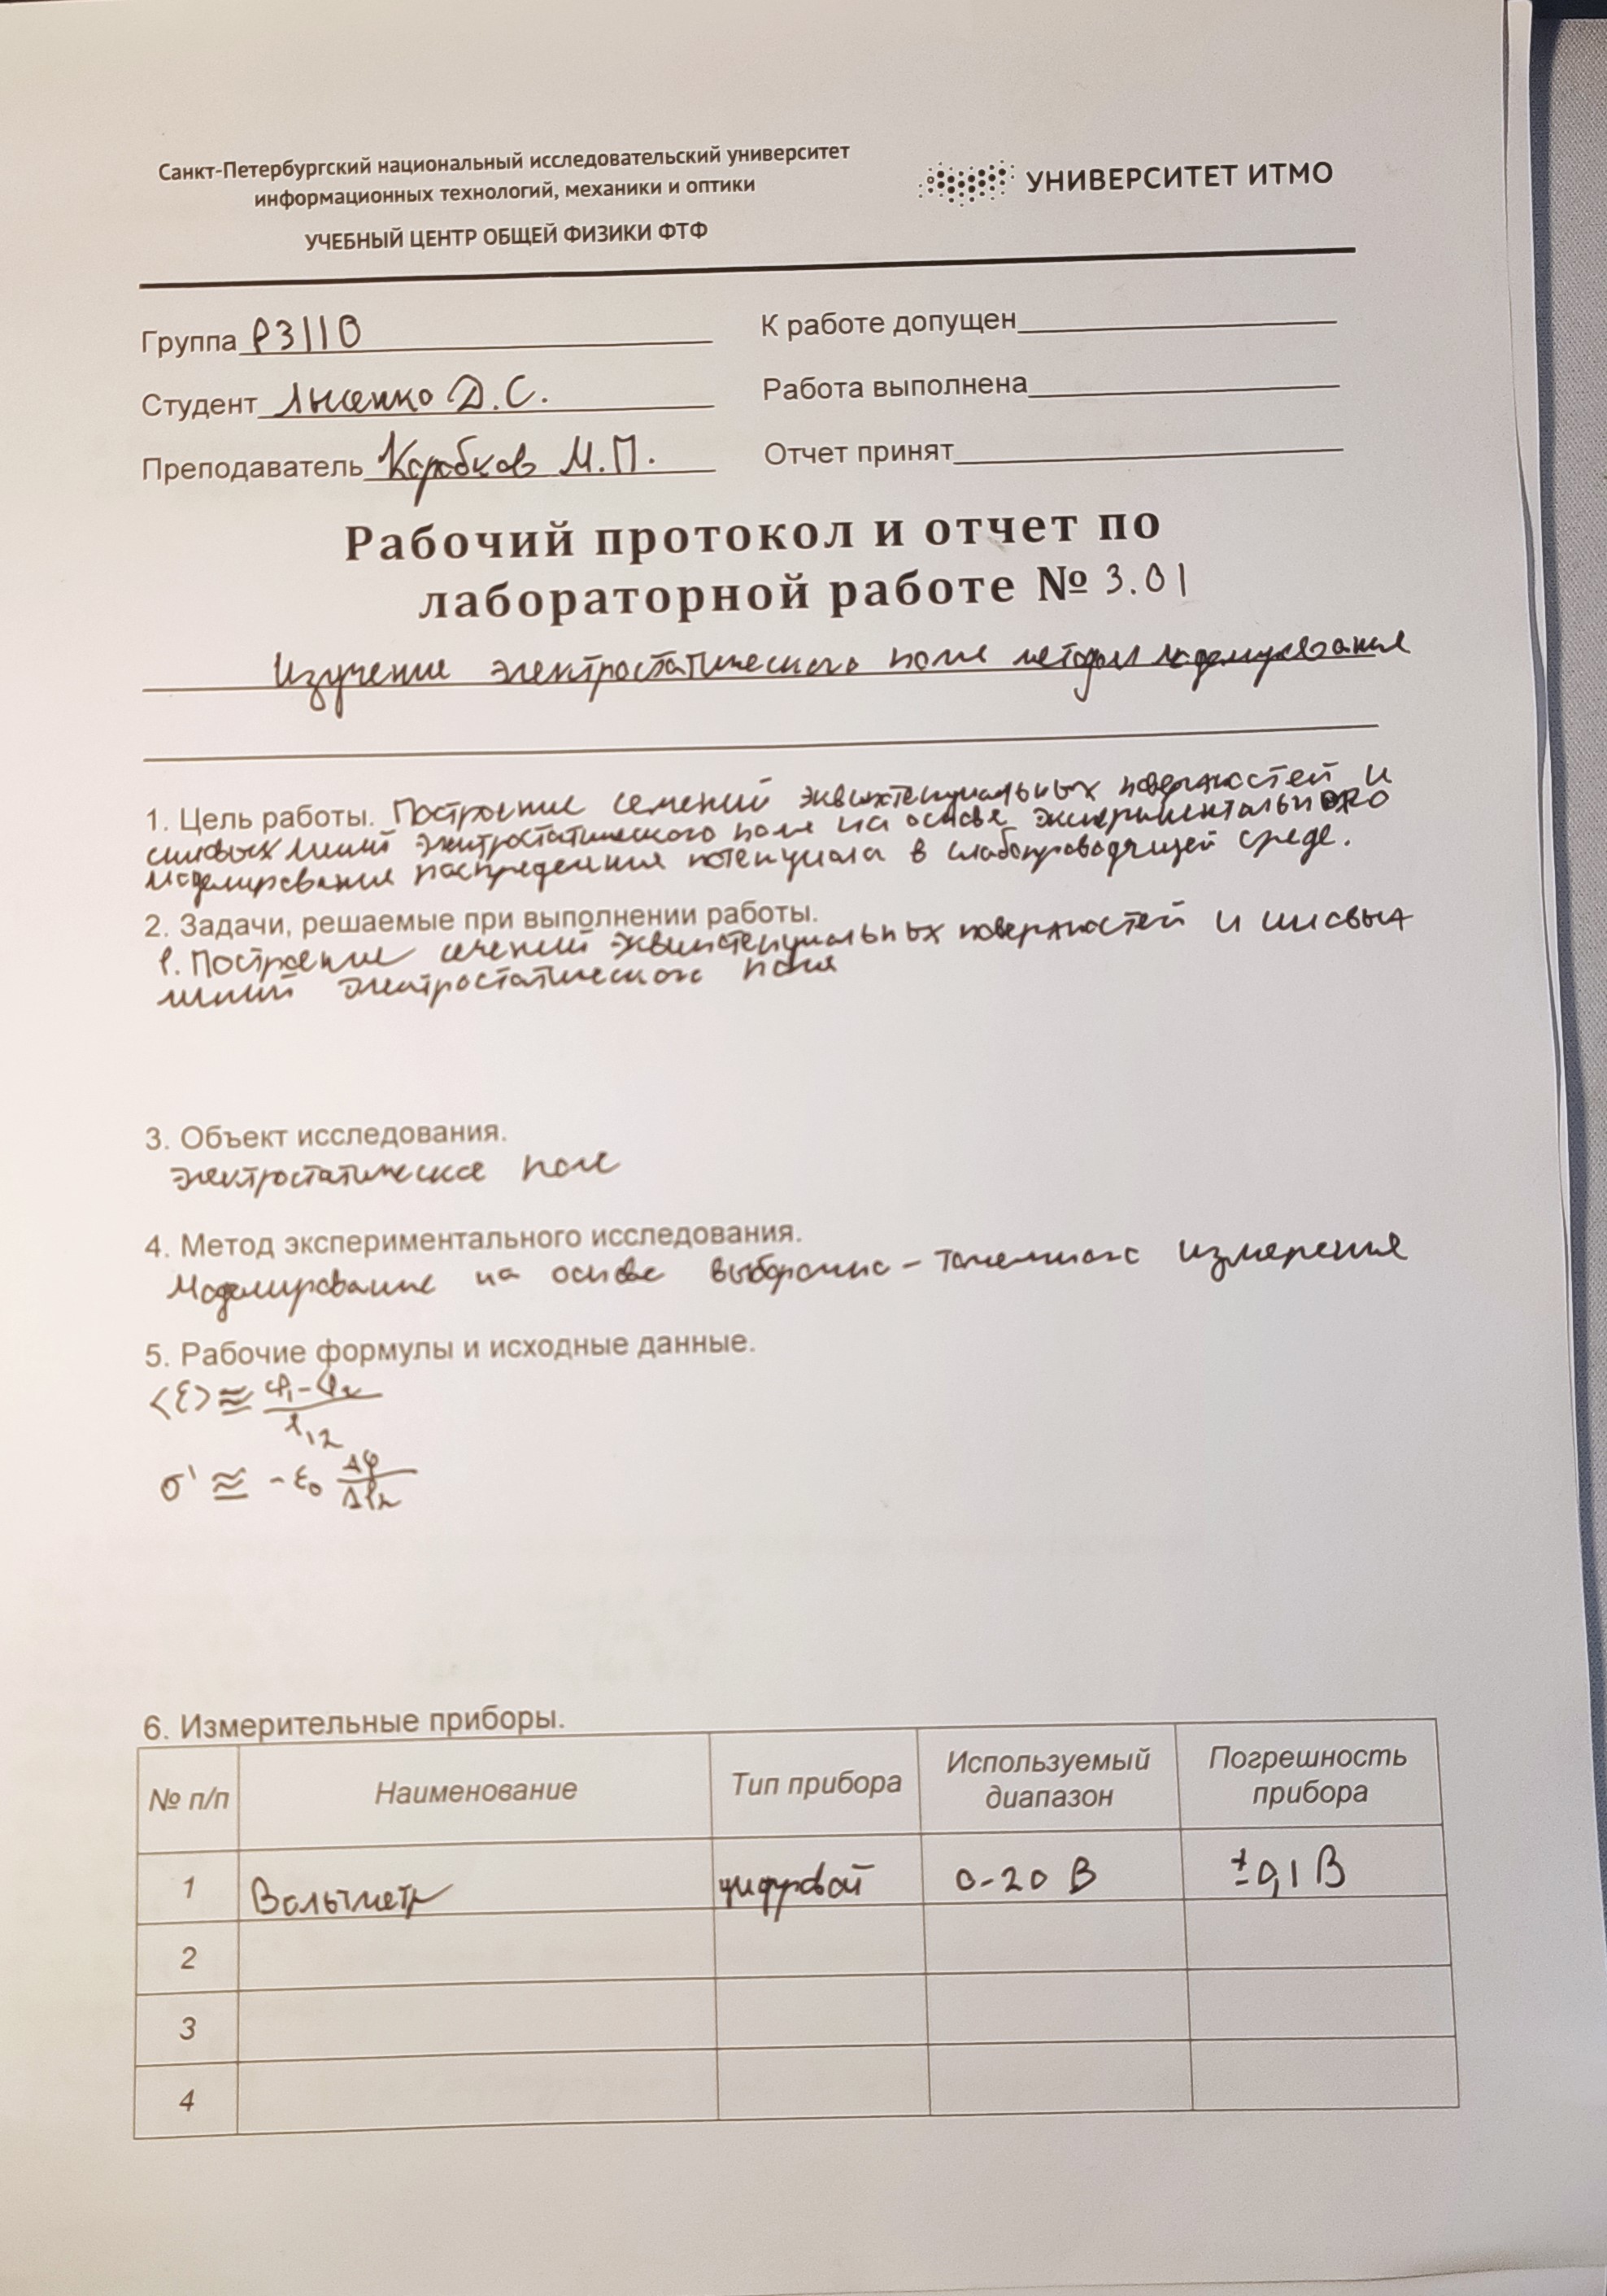 Санкт-Петербургский национальный исследовательский университет
информационных технологий, механики и оптики
УЧЕБНЫЙ ЦЕНТР ОБЩЕЙ ФИЗИКИ ФТФ
УНИВЕРСИТЕТ ИТМО
Группа P3110
К работе допущен
Студент Лысенко Д.С.
Работа выполнена
Преподаватель Коробков М.П.
Отчет принят
Рабочий протокол и отчет по
лабораторной работе № 3.01
Изучение электростатического поля методом моделирования
1. Цель работы. Построение сечений эквипотенциальных поверхностей и
силовых линий электростатического поля на основе экспериментального
моделирования распределения потенциала в слабопроводящей среде.
2. Задачи, решаемые при выполнении работы.
1. Построение сечений эквипотенциальных поверхностей и силовых
линий электростатического поля
3. Объект исследования.
Электростатическое поле
4. Метод экспериментального исследования.
Моделирование на основе выборочно-точечного измерения
5. Рабочие формулы и исходные данные.
<E> ≅ (φ₁ - φ₂) / l₁₂
σ' ≅ -ε₀ Δφ / Δlₙ
6. Измерительные приборы.
№ п/п Наименование Тип прибора Используемый диапазон Погрешность прибора
1 Вольтметр цифровой 0-20 В ±0,1 В
2
3
4